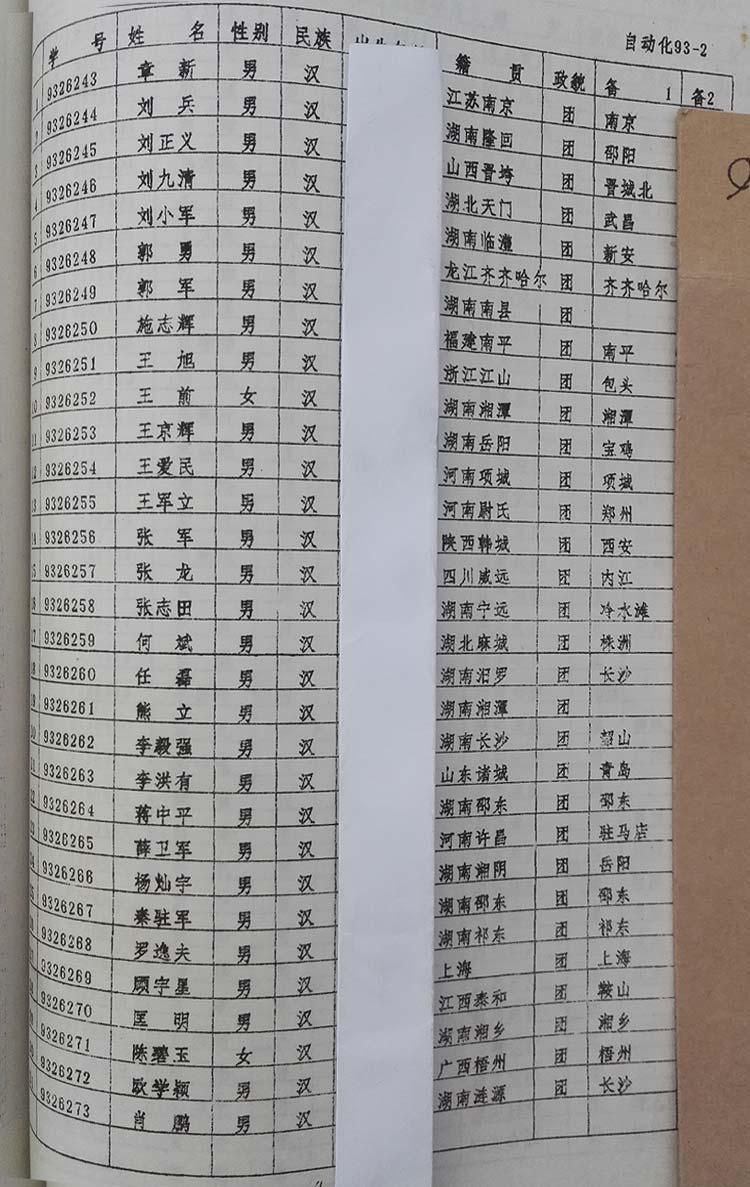 自动化93-2
学 号 姓 名 性别 民族 籍 贯 政貌 备 1 备2
1 9326243 章 新 男 汉 江苏南京 团 南京
2 9326244 刘 兵 男 汉 湖南隆回 团 邵阳
3 9326245 刘正义 男 汉 山西晋垮 团 晋城北
4 9326246 刘九清 男 汉 湖北天门 团 武昌
5 9326247 刘小军 男 汉 湖南临澧 团 新安
6 9326248 郭 勇 男 汉 龙江齐齐哈尔 团 齐齐哈尔
7 9326249 郭 军 男 汉 湖南南县 团
8 9326250 施志辉 男 汉 福建南平 团 南平
9 9326251 王 旭 男 汉 浙江江山 团 包头
10 9326252 王 前 女 汉 湖南湘潭 团 湘潭
11 9326253 王京辉 男 汉 湖南岳阳 团 宝鸡
12 9326254 王爱民 男 汉 河南项城 团 项城
13 9326255 王军立 男 汉 河南尉氏 团 郑州
14 9326256 张 军 男 汉 陕西韩城 团 西安
15 9326257 张 龙 男 汉 四川威远 团 内江
16 9326258 张志田 男 汉 湖南宁远 团 冷水滩
17 9326259 何 斌 男 汉 湖北麻城 团 株洲
18 9326260 任 磊 男 汉 湖南汨罗 团 长沙
19 9326261 熊 立 男 汉 湖南湘潭 团
20 9326262 李毅强 男 汉 湖南长沙 团 韶山
21 9326263 李洪有 男 汉 山东诸城 团 青岛
22 9326264 蒋中平 男 汉 湖南邵东 团 邵东
23 9326265 薛卫军 男 汉 河南许昌 团 驻马店
24 9326266 杨灿宇 男 汉 湖南湘阴 团 岳阳
25 9326267 秦驻军 男 汉 湖南邵东 团 邵东
9326268 罗逸夫 男 汉 湖南祁东 团 祁东
9326269 顾宇星 男 汉 上海 团 上海
9326270 匡 明 男 汉 江西泰和 团 鞍山
9326271 陈碧玉 女 汉 湖南湘乡 团 湘乡
9326272 欧学颖 男 汉 广西梧州 团 梧州
9326273 肖 鹏 男 汉 湖南涟源 团 长沙